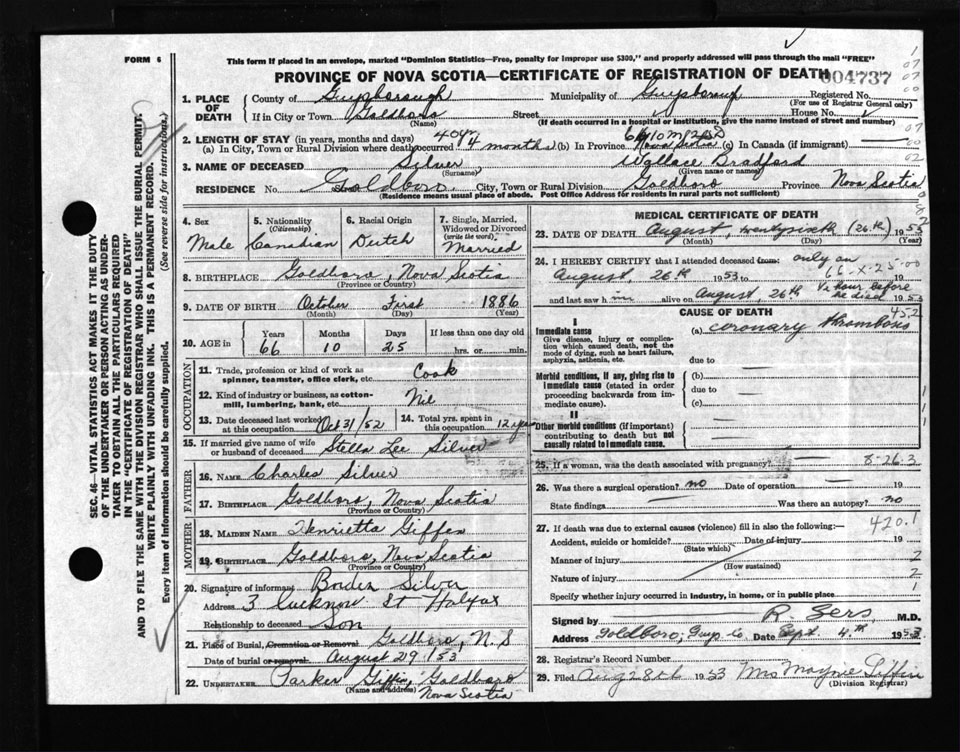 FORM 6
This form if placed in an envelope, marked "Dominion Statistics—Free, penalty for improper use $300," and properly addressed will pass through the mail "FREE"
PROVINCE OF NOVA SCOTIA—CERTIFICATE OF REGISTRATION OF DEATH
004737
1. PLACE OF DEATH
County of Guysborough Municipality of Guysborough Registered No.
(For use of Registrar General only)
If in City or Town Goldboro Street House No.
(Name) (If death occurred in a hospital or institution, give the name instead of street and number)
2. LENGTH OF STAY (in years, months and days)
(a) In City, Town or Rural Division where death occurred 4 months (b) In Province Nova Scotia (c) In Canada (if immigrant)
3. NAME OF DECEASED Silver Wallace Bradford
(Surname) (Given name or names)
RESIDENCE No. Goldboro City, Town or Rural Division Goldboro Province Nova Scotia
(Residence means usual place of abode. Post Office Address for residents in rural parts not sufficient)
4. Sex Male
5. Nationality (Citizenship) Canadian
6. Racial Origin Dutch
7. Single, Married, Widowed or Divorced (write the word) Married
8. BIRTHPLACE Goldboro, Nova Scotia
(Province or Country)
9. DATE OF BIRTH October First 1886
(Month) (Day) (Year)
10. AGE in Years 66 Months 10 Days 25 If less than one day
hrs. or min.
OCCUPATION
11. Trade, profession or kind of work as spinner, teamster, office clerk, etc. Cook
12. Kind of industry or business, as cotton-mill, lumbering, bank, etc. Nil
13. Date deceased last worked at this occupation Oct 31/52
14. Total yrs. spent in this occupation 12 yrs
15. If married give name of wife or husband of deceased Stella Lee Silver
FATHER
16. NAME Charles Silver
17. BIRTHPLACE Goldboro, Nova Scotia
(Province or Country)
MOTHER
18. MAIDEN NAME Henrietta Giffen
19. BIRTHPLACE Goldboro, Nova Scotia
(Province or Country)
20. Signature of informant Borden Silver
Address 3 Lucknow St Halifax
Relationship to deceased Son
21. Place of Burial, Cremation or Removal Goldboro, N.S
Date of burial or removal August 29/53
22. UNDERTAKER Parker Giffin, Goldboro
(Name and address) Nova Scotia
MEDICAL CERTIFICATE OF DEATH
23. DATE OF DEATH August, twentysixth (26th) 1953
(Month) (Day) (Year)
24. I HEREBY CERTIFY that I attended deceased from: only on
66-X-25-00
August, 26th 1953 to 19
and last saw h im alive on August, 26th ½ hour before he died 1953
CAUSE OF DEATH
452
I
Immediate cause (a) coronary thrombosis
Give disease, injury or complication which caused death, not the mode of dying, such as heart failure, asphyxia, asthenia, etc.
due to
Morbid conditions, if any, giving rise to immediate cause (stated in order proceeding backwards from immediate cause).
(b)
due to
(c)
II
Other morbid conditions (if important) contributing to death but not causally related to immediate cause.
25. If a woman, was the death associated with pregnancy?
8-26.3
26. Was there a surgical operation? no Date of operation
State findings Was there an autopsy? no
27. If death was due to external causes (violence) fill in also the following:—
420.1
Accident, suicide or homicide? Date of injury 19
(State which)
Manner of injury 2
(How sustained)
Nature of injury 2
Specify whether injury occurred in industry, in home, or in public place 1
Signed by R Sers M.D.
Address Goldboro, Guys. Co Date Sept 4th 1953
28. Registrar's Record Number
29. Filed Aug 28th 1953 Mrs Mayne Giffin
(Division Registrar)
SEC. 46—VITAL STATISTICS ACT MAKES IT THE DUTY OF THE UNDERTAKER OR PERSON ACTING AS UNDERTAKER TO OBTAIN ALL THE PARTICULARS REQUIRED IN THE "CERTIFICATE OF REGISTRATION OF DEATH" AND TO FILE THE SAME WITH THE DIVISION REGISTRAR WHO SHALL ISSUE THE BURIAL PERMIT.
WRITE PLAINLY WITH UNFADING INK. THIS IS A PERMANENT RECORD.
Every item of information should be carefully supplied. (See reverse side for instructions.)